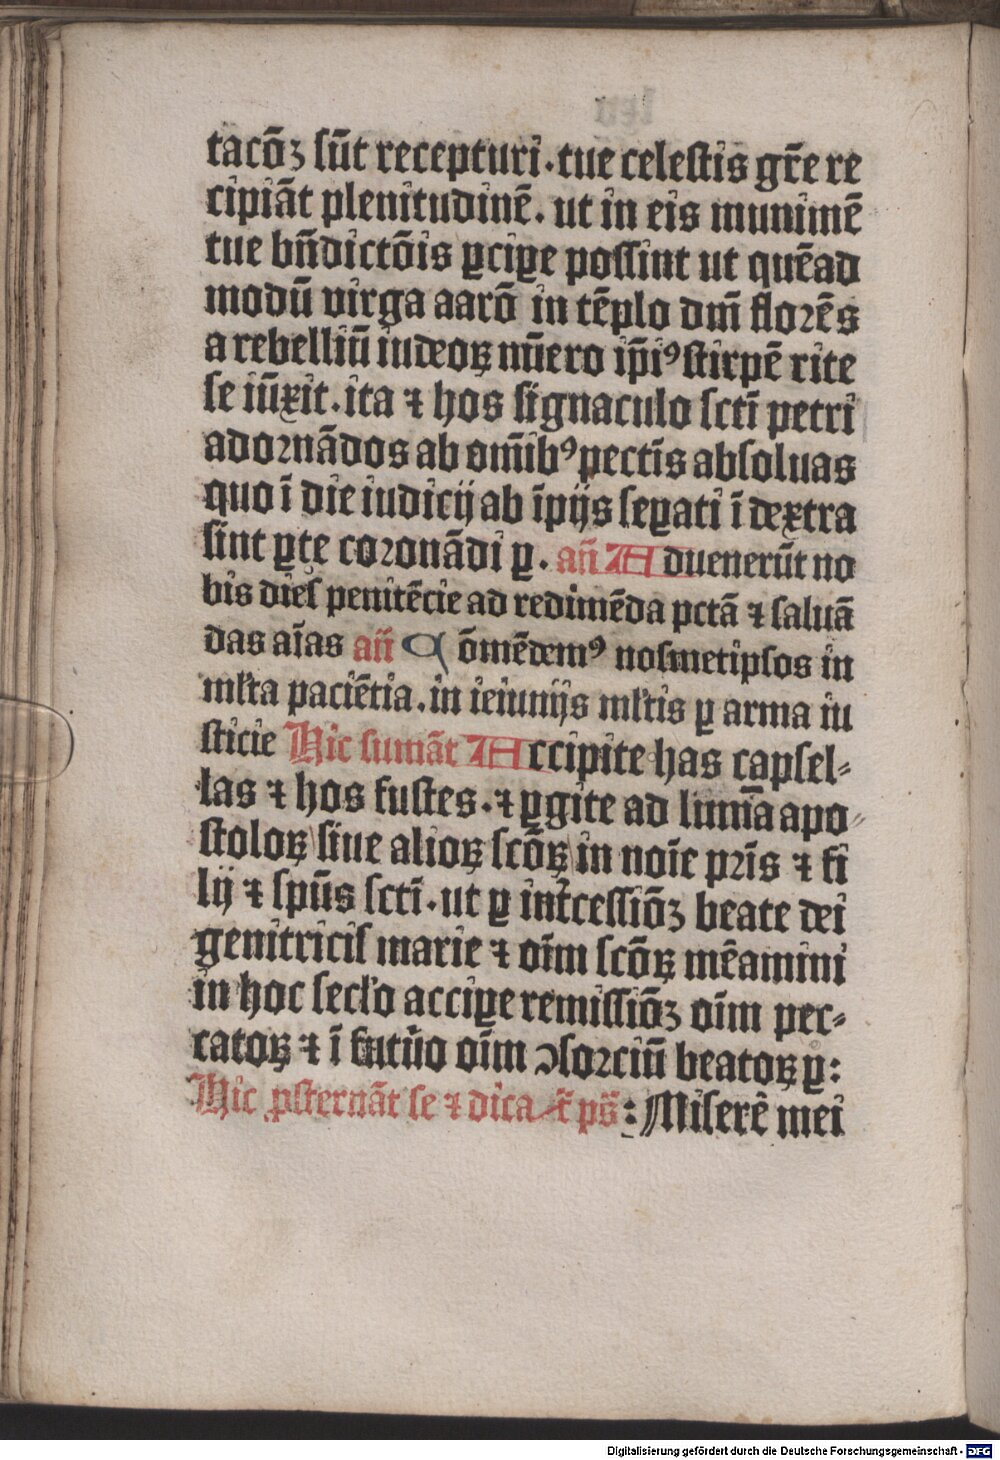 tacōꝫ sūt recepturi · tue celestis gr̄e re
cipiāt plenitudinē . ut in eis munimē
tue bn̄dictōis ꝑciꝑe possint ut quēad
modū virga aarō in tēplo dm̄ florēs
a rebelliū iudeoꝝ nūero ip̄iꝰ stirpē rite
se iūxit . ita ⁊ hos signaculo sctī petri
adornādos ab om̄ibꝰ pectīs absoluas
quo ī die iudicij ab īpijs seꝑati ī dextra
sint ꝑte coronādi ꝑ . an̄ Aduenerūt no
bis dies penitēcie ad redimēda pctā ⁊ saluā
das aīas an̄ Cōmēdemꝰ nosmetipsos in
mł̄ta paciētia . in ieiunijs mł̄tis ꝑ arma iu
sticie Hic sumāt Accipite has capsel-
las ⁊ hos fustes · ⁊ ꝑgite ad limīa apo-
stoloꝝ siue alioꝝ scōꝝ in noīe pr̄is ⁊ fi
lij ⁊ spūs sctī · ut ꝑ int̄cessiōꝫ beate dei
genitricis marie ⁊ oīm scōꝝ mēamini
in hoc secło acciꝑe remissiōꝫ oīm pec-
catoꝝ ⁊ ī futūo oīm ↄsorciū beatoꝝ ꝑ :
Hic ꝓsternāt se ⁊ dicāt᷑ ps̄ : Miserē mei
Digitalisierung gefördert durch die Deutsche Forschungsgemeinschaft - DFG